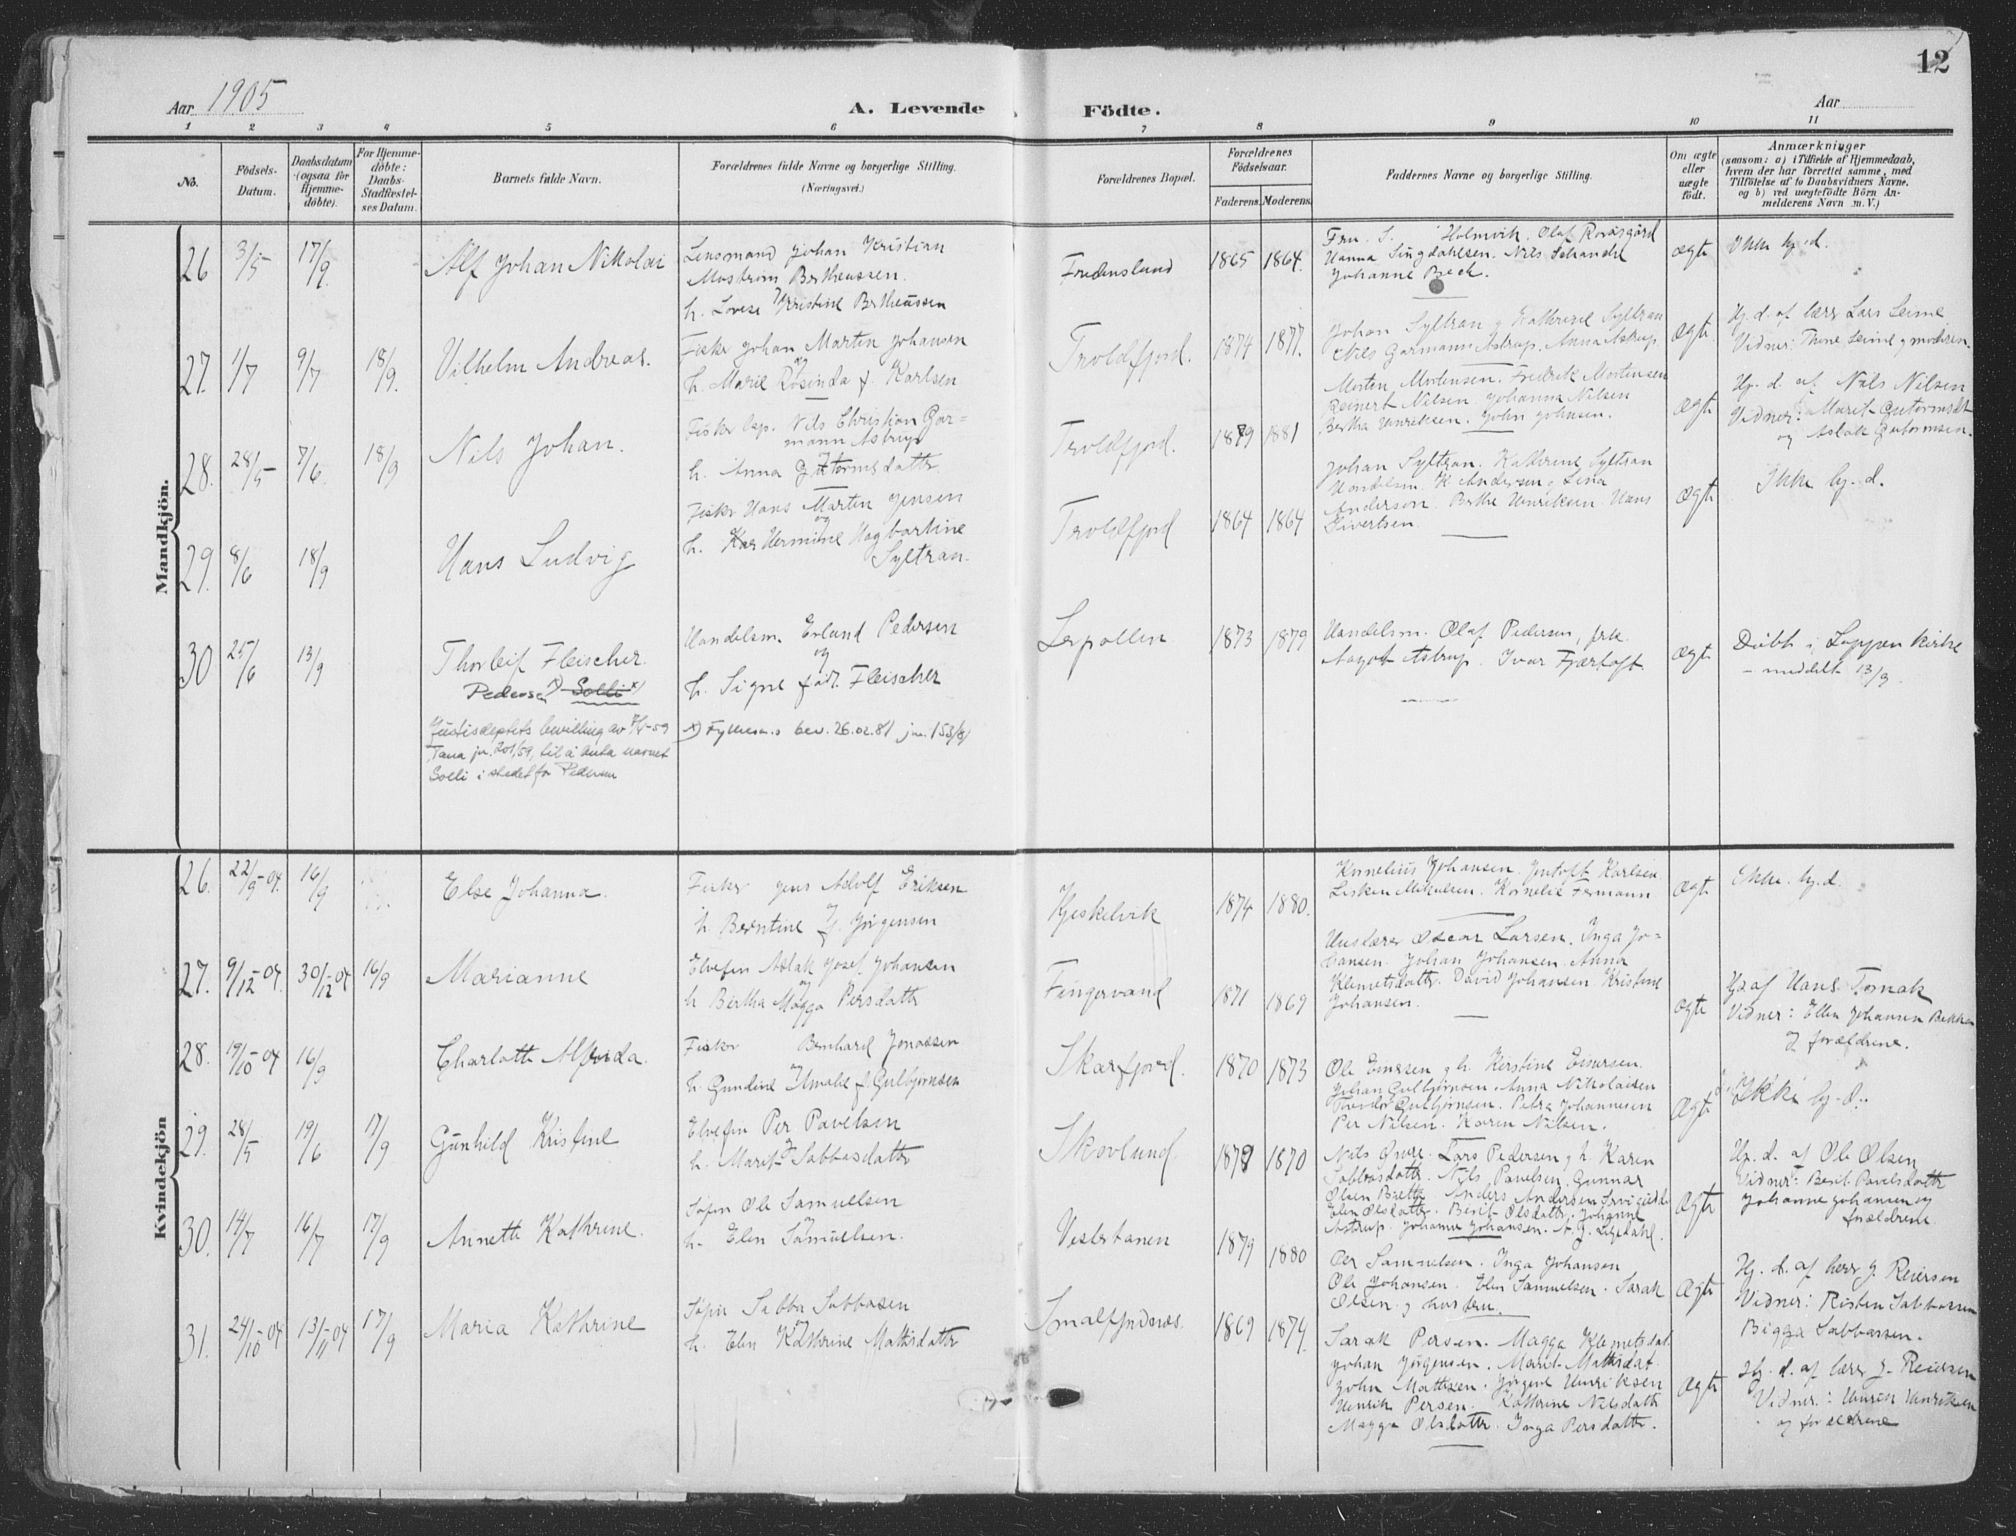 12
Aar 1905
A. Levende Födte.
Aar
1 2 3 4 5 6 7 8 9 10 11
No.
Födsels-Datum.
Daabsdatum (ogsaa for Hjemme-döbte).
For Hjemme-döbte: Daabs-Stadfæstel-ses Datum.
Barnets fulde Navn.
Forældrenes fulde Navne og borgerlige Stilling.
(Næringsvei.)
Forældrenes Bopæl.
Forældrenes Födselsaar.
Faderens. Moderens.
Faddernes Navne og borgerlige Stilling.
Om ægte eller uægte födt.
Anmærkninger
(saasom: a) i Tilfælde af Hjemmedaab,
hvem der har forrettet samme, med
Tilföielse af to Daabsvidners Navne,
og b) ved uægtefödte Börn An-
melderens Navn m. V.)
Mandkjön.
26 3/5 17/9 Alf Johan Nikolai
Lensmand Johan Kristian
Bertheussen.
h. Lovise Kristine Bertheussen
Fredenslund 1865 1864.
Fru S. Holmvik. Olaf
Hanna Lingdahlsen. Nils Schanche
Johanne Beck.
ægte Ikke hj.d.
27. 1/7 9/7 18/9. Vilhelm Andreas.
Fisker Johan Martin Johansen
og
h. Marie Rosinda f. Karlsen
Troldfjord. 1874 1877.
Johan Syltran og Kathrine Syltran
Nils Garmann Astrup. Anna Astrup.
ægte.
Hj.d. af lærer Lars Leine
Vidner: Thine Leine og moderen.
28. 28/5 7/6 18/9 Nils Johan.
Fisker Nils Christian Gar-
mann Astrup
h. Anna Guttormsdatter
Troldfjord. 1879 1881
Morten Mortensen. Fredrik Mortensen
Reinert Nilsen. Johanna Nilsen
Bertha Henriksen. John Johnsen.
ægte
Hj. d. af Nils Nilsen
Vidner: Marit Gutormsdt
og Aslak Gutormsen.
29. 8/6 18/9 Hans Ludvig
Fisker Hans Martin Jensen
og
h. Hermine Hagbartine
Syltran.
Troldfjord 1864 1864
Johan Syltran. Kathrine Syltran
Handelsm. K. Andersen. Lina
Andersen. Berthe Henriksen. Hans
Sivertsen.
ægte Ikke hj.d.
30 25/6 13/9 Thorleif Fleischer.
Pedersen x) Solli x)
Justisdeptets bevilling av 7/4-59
Tana jnr. 201/59, til å anta navnet
Solli i stedet for Pedersen
Handelsm. Erland Pedersen
og
h. Signe født Fleischer
x) Fylkesm.s bev. 26.02.81 jnr. 153/81
Lerpollen 1873 1879
Handelsm. Olaf Pedersen, frk.
Aagot Astrup. Ivar Fjærtoft.
ægte
Døbt i Loppen kirke
- meddelt 13/9.
Kvindekjön
26. 22/9-04. 16/9 Else Johanna.
Fisker Jens Adolf Eriksen
h. Berntine f. Jørgensen
Kjeskelvik 1874 1880.
Kornelius Johansen. Jentoft Karlsen
Lisken Mikalsen. Kornelie Fermann
ægte Ikke hj.d.
27. 9/12-04. 30/12-04 16/9 Marianne
Elvefin Aslak Josef Johansen
og
h Bertha Magga Persdatter
Fingervand 1871 1869
Huslærer Oscar Larsen. Inga Jo-
hansen. Johan Johansen. Anna
Klemetsdatter. David Johansen. Kristine
Johansen.
ægte
Hj. af Hans Tomak
Vidner: Ellen Johansen
og forældrene.
28. 19/10-04 16/9 Charlotte Alfrida.
Fisker Bernhard Jonassen
og
h. Gundine Amalie f. Gulbjørnsen
Skarfjord. 1870 1873
Ole Einersen og h. Kirstine Einersen.
Johan Gulbjørnsen. Anna Nikolaisen
Teodor Gulbjørnsen. Petra Johannesen
Per Nilsen. Karen Nilsen.
ægte Ikke hj.d.
29. 28/5 19/6 17/9 Gunhild Kristine
Elvefin Per Pavelsen
h. Marit Sabbasdatter
Skovlund. 1878 1870
Nils Lars Pedersen og h. Karen
Sabbasdatter. Nils Pavelsen. Gunnar
Olsen Anders Andersen
Elen Olsdatter. Berit Olsdatter. Johanne
Astrup. Johanne Johansen. A.J.
ægte
Hj.d. af Ole Olsen
Vidner: Berit Pavelsdatter
Johanne Johansen og
forældrene.
30. 14/7 16/7 17/9 Annette Kathrine.
Søfin Ole Samuelsen
h. Elen Samuelsen.
Vestertanen 1879 1880
Per Samuelsen. Inga Johansen
Ole Johansen. Elen Samuelsen. Sarak
Olsen og hustru.
ægte
Hj. d. af lærer J. Reiersen
Vidner: Risten Sabbasen
Bigga Sabbassen.
31. 24/10-04 13/11-04 17/9 Maria Kathrine
Søfin Sabba Sabbasen
og
h. Elen Kathrine Mathisdatter
Smalfjordnæs. 1869 1874
Sarak Persen. Magga Klemetsdat.
Johan Jørgensen. Marit Mathisdat.
John Mathisen. Jørgine Henriksen
Henrik Persen. Kathrine Nilsdatter
Magga Olsdatter. Inga Persdatter.
ægte
Hj. d. af lærer J. Reiersen
Vidner: Henrik Henriksen
og forældrene